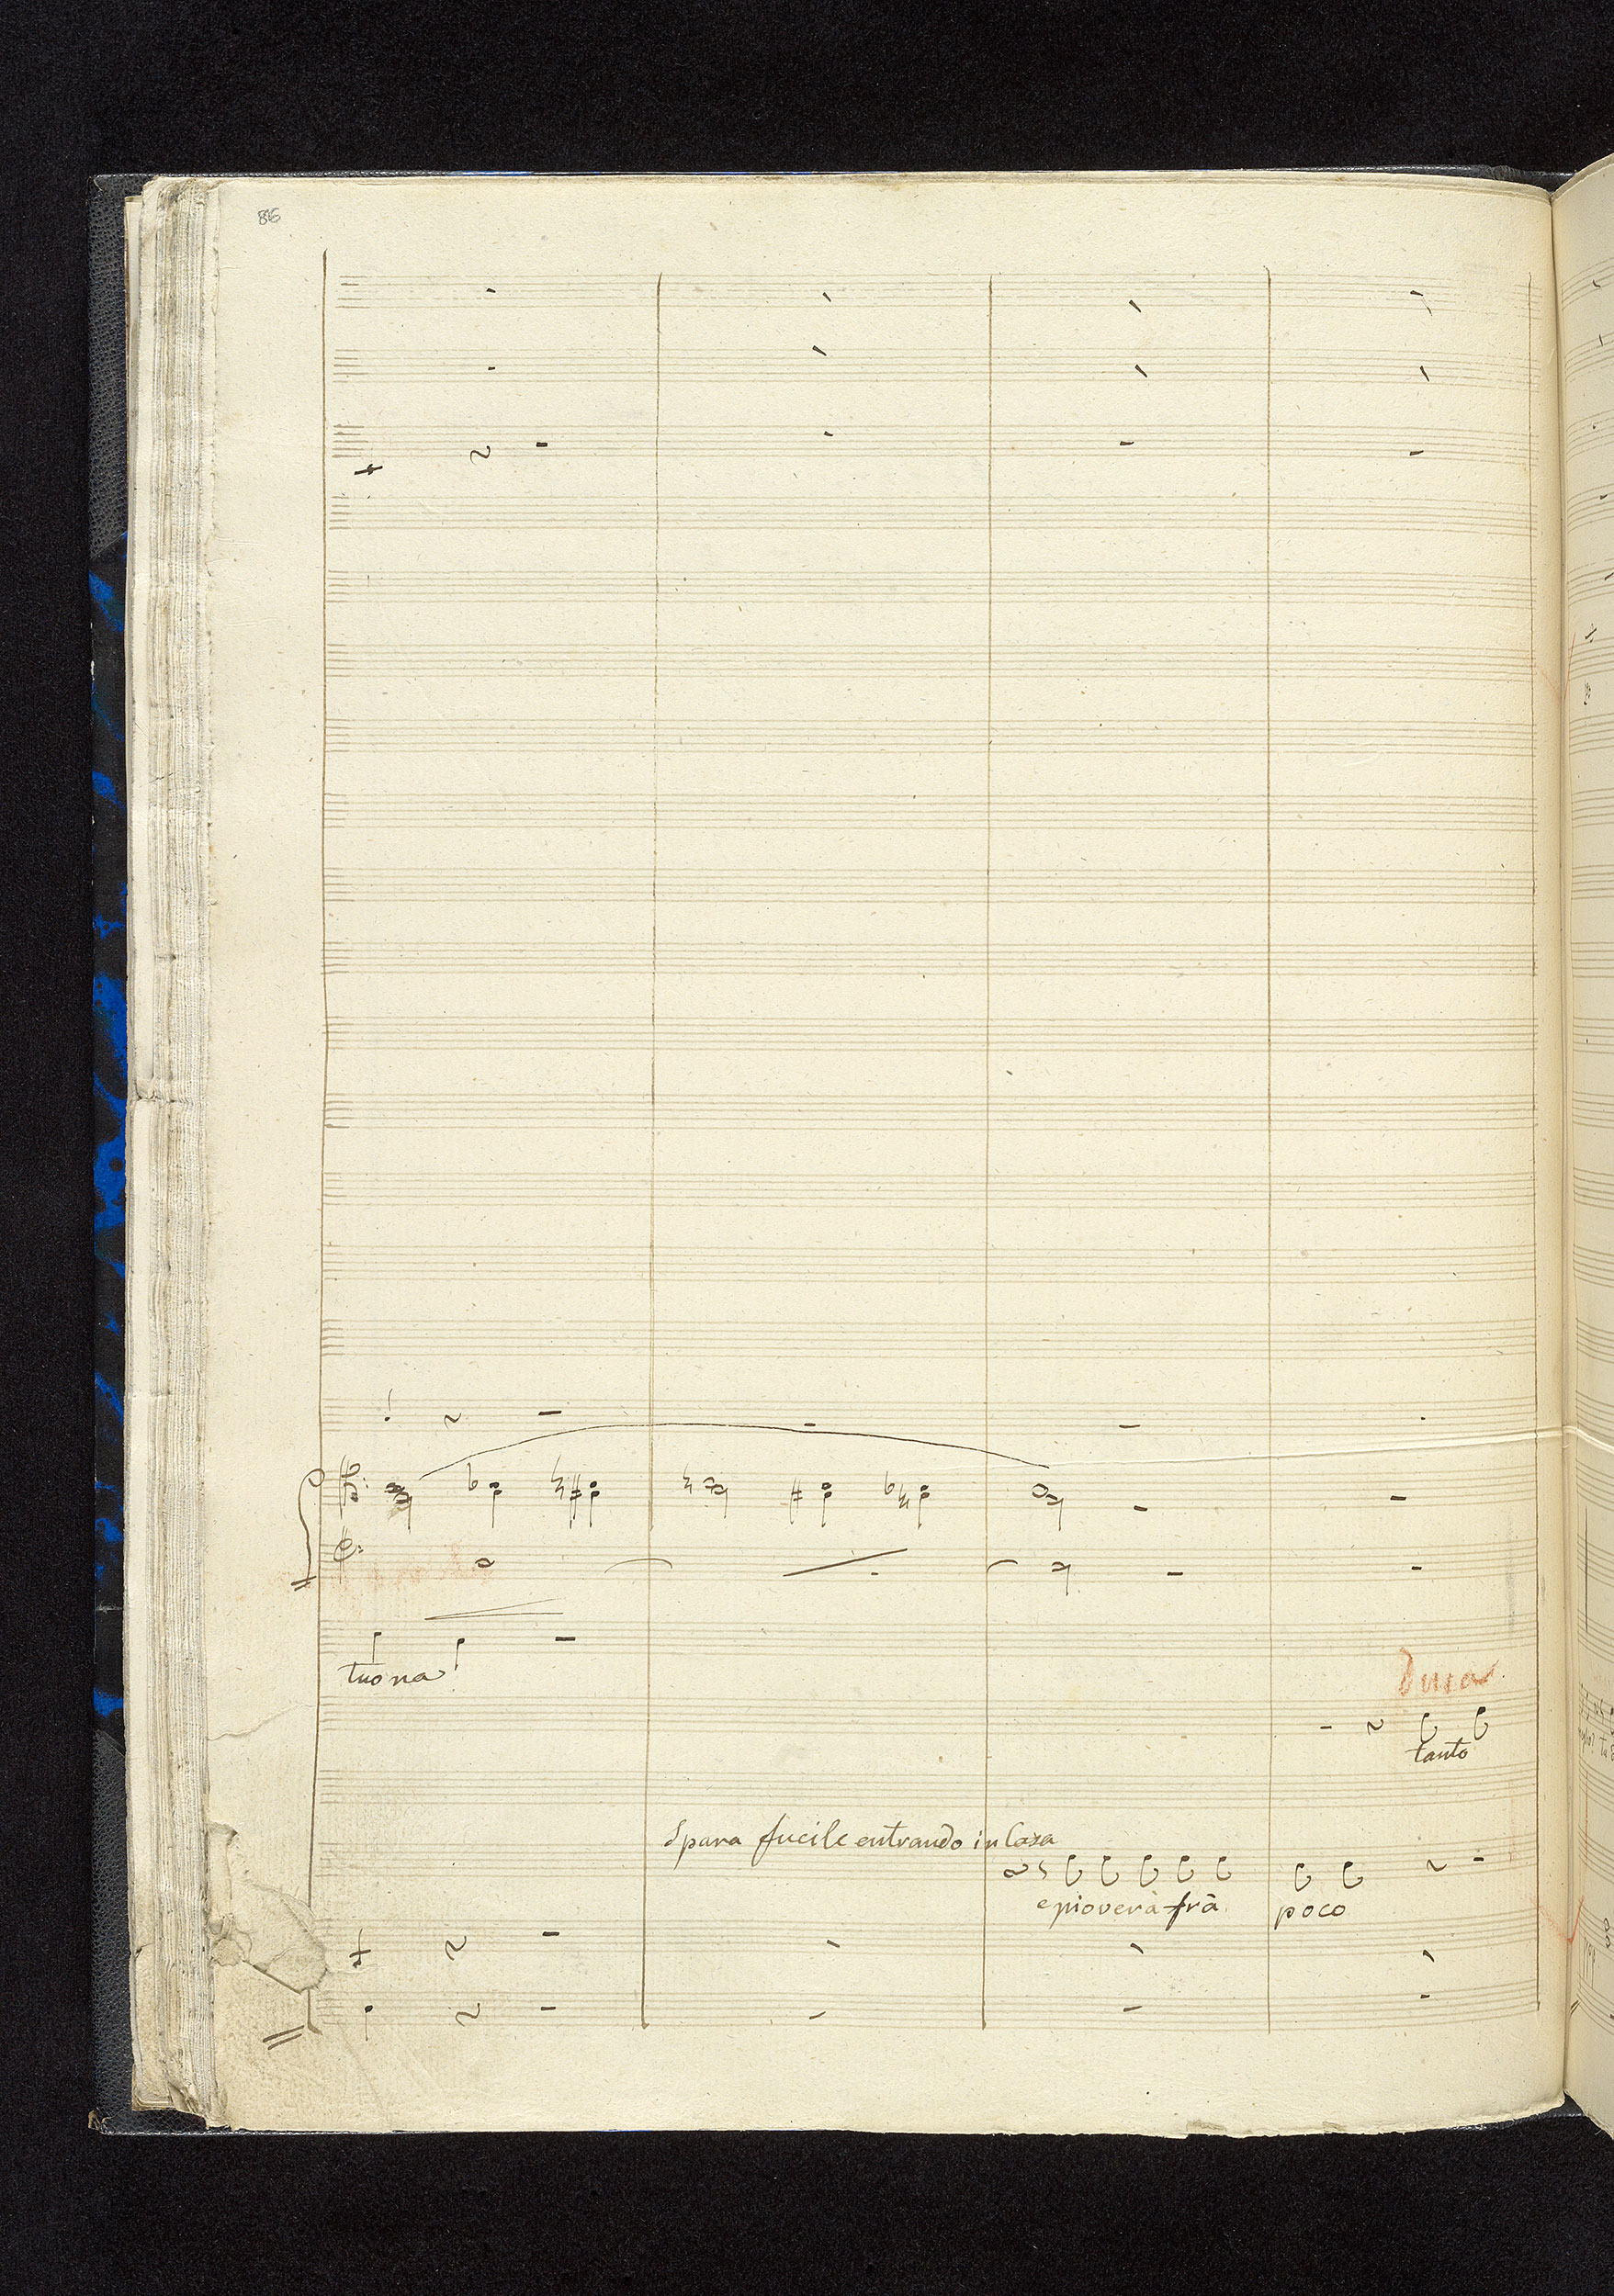 86
tuona!
Duca
tanto
Sparafucile entrando in Casa
e pioverà frà poco